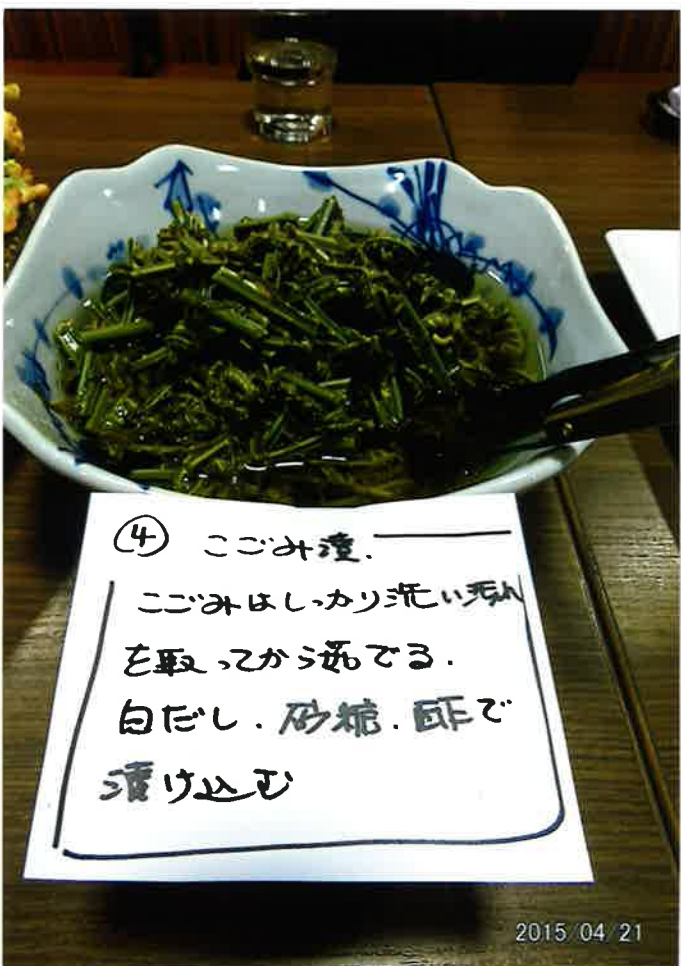 ④ こごみ漬.
こごみはしっかり洗い汚れ
を取ってから茹でる.
白だし.砂糖.酢で
漬け込む
2015/04/21